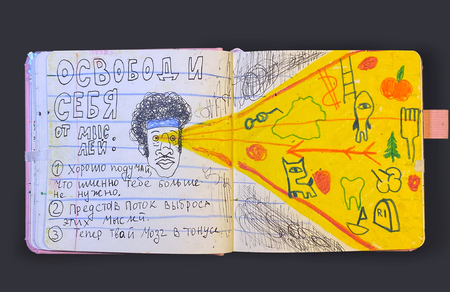 ОСВОБОДИ
СЕБЯ
ОТ МЫС
ЛЕЙ:
1 Хорошо подумай,
что именно тебе больше
не нужно.
2 Представ поток выброса
этих мыслей
3 Тепер твай мозг в тонусе
$
R.I